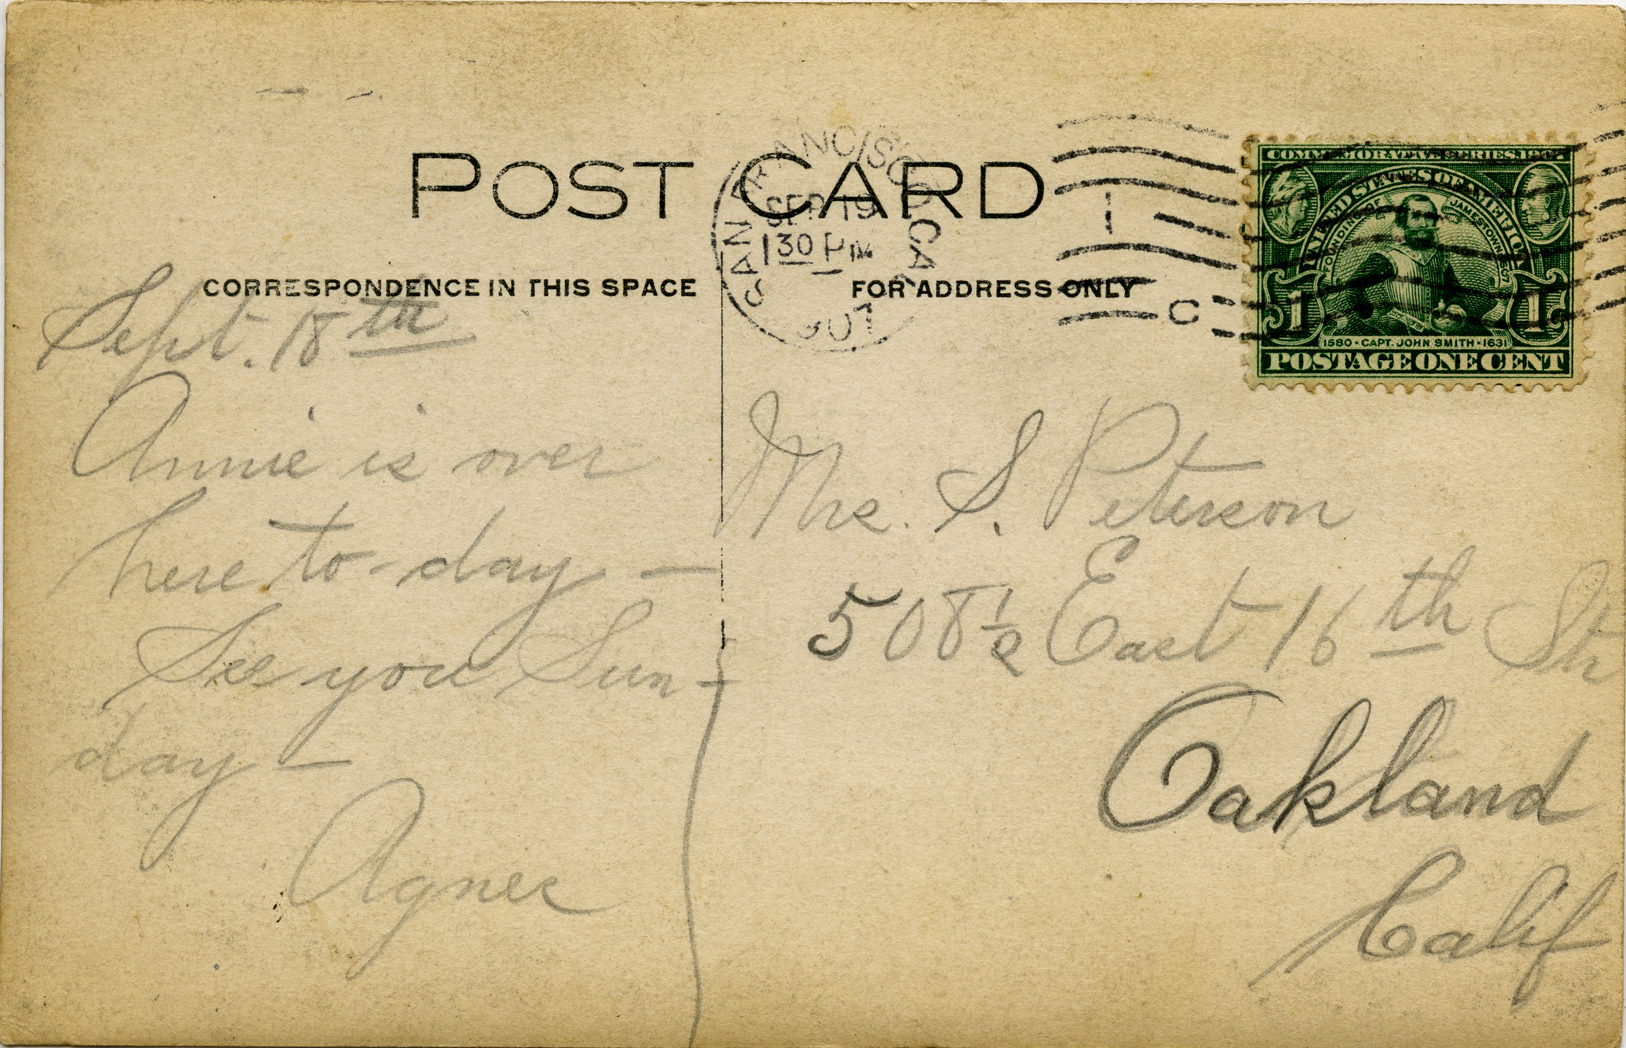 POST CARD
CORRESPONDENCE IN THIS SPACE
FOR ADDRESS ONLY
SAN FRANCISCO, CA
SEP 19
1 30 PM
907
1
C
COMMEMORATIVE SERIES 1907
UNITED STATES OF AMERICA
FOUNDING OF JAMESTOWN 1607
1 1
1580 · CAPT. JOHN SMITH · 1631
POSTAGE ONE CENT
Sept. 18th
Annie is over
here to-day —
See you Sun-
day —
Agnes
Mrs. S. Peterson
508½ East 16th Str
Oakland
Calif